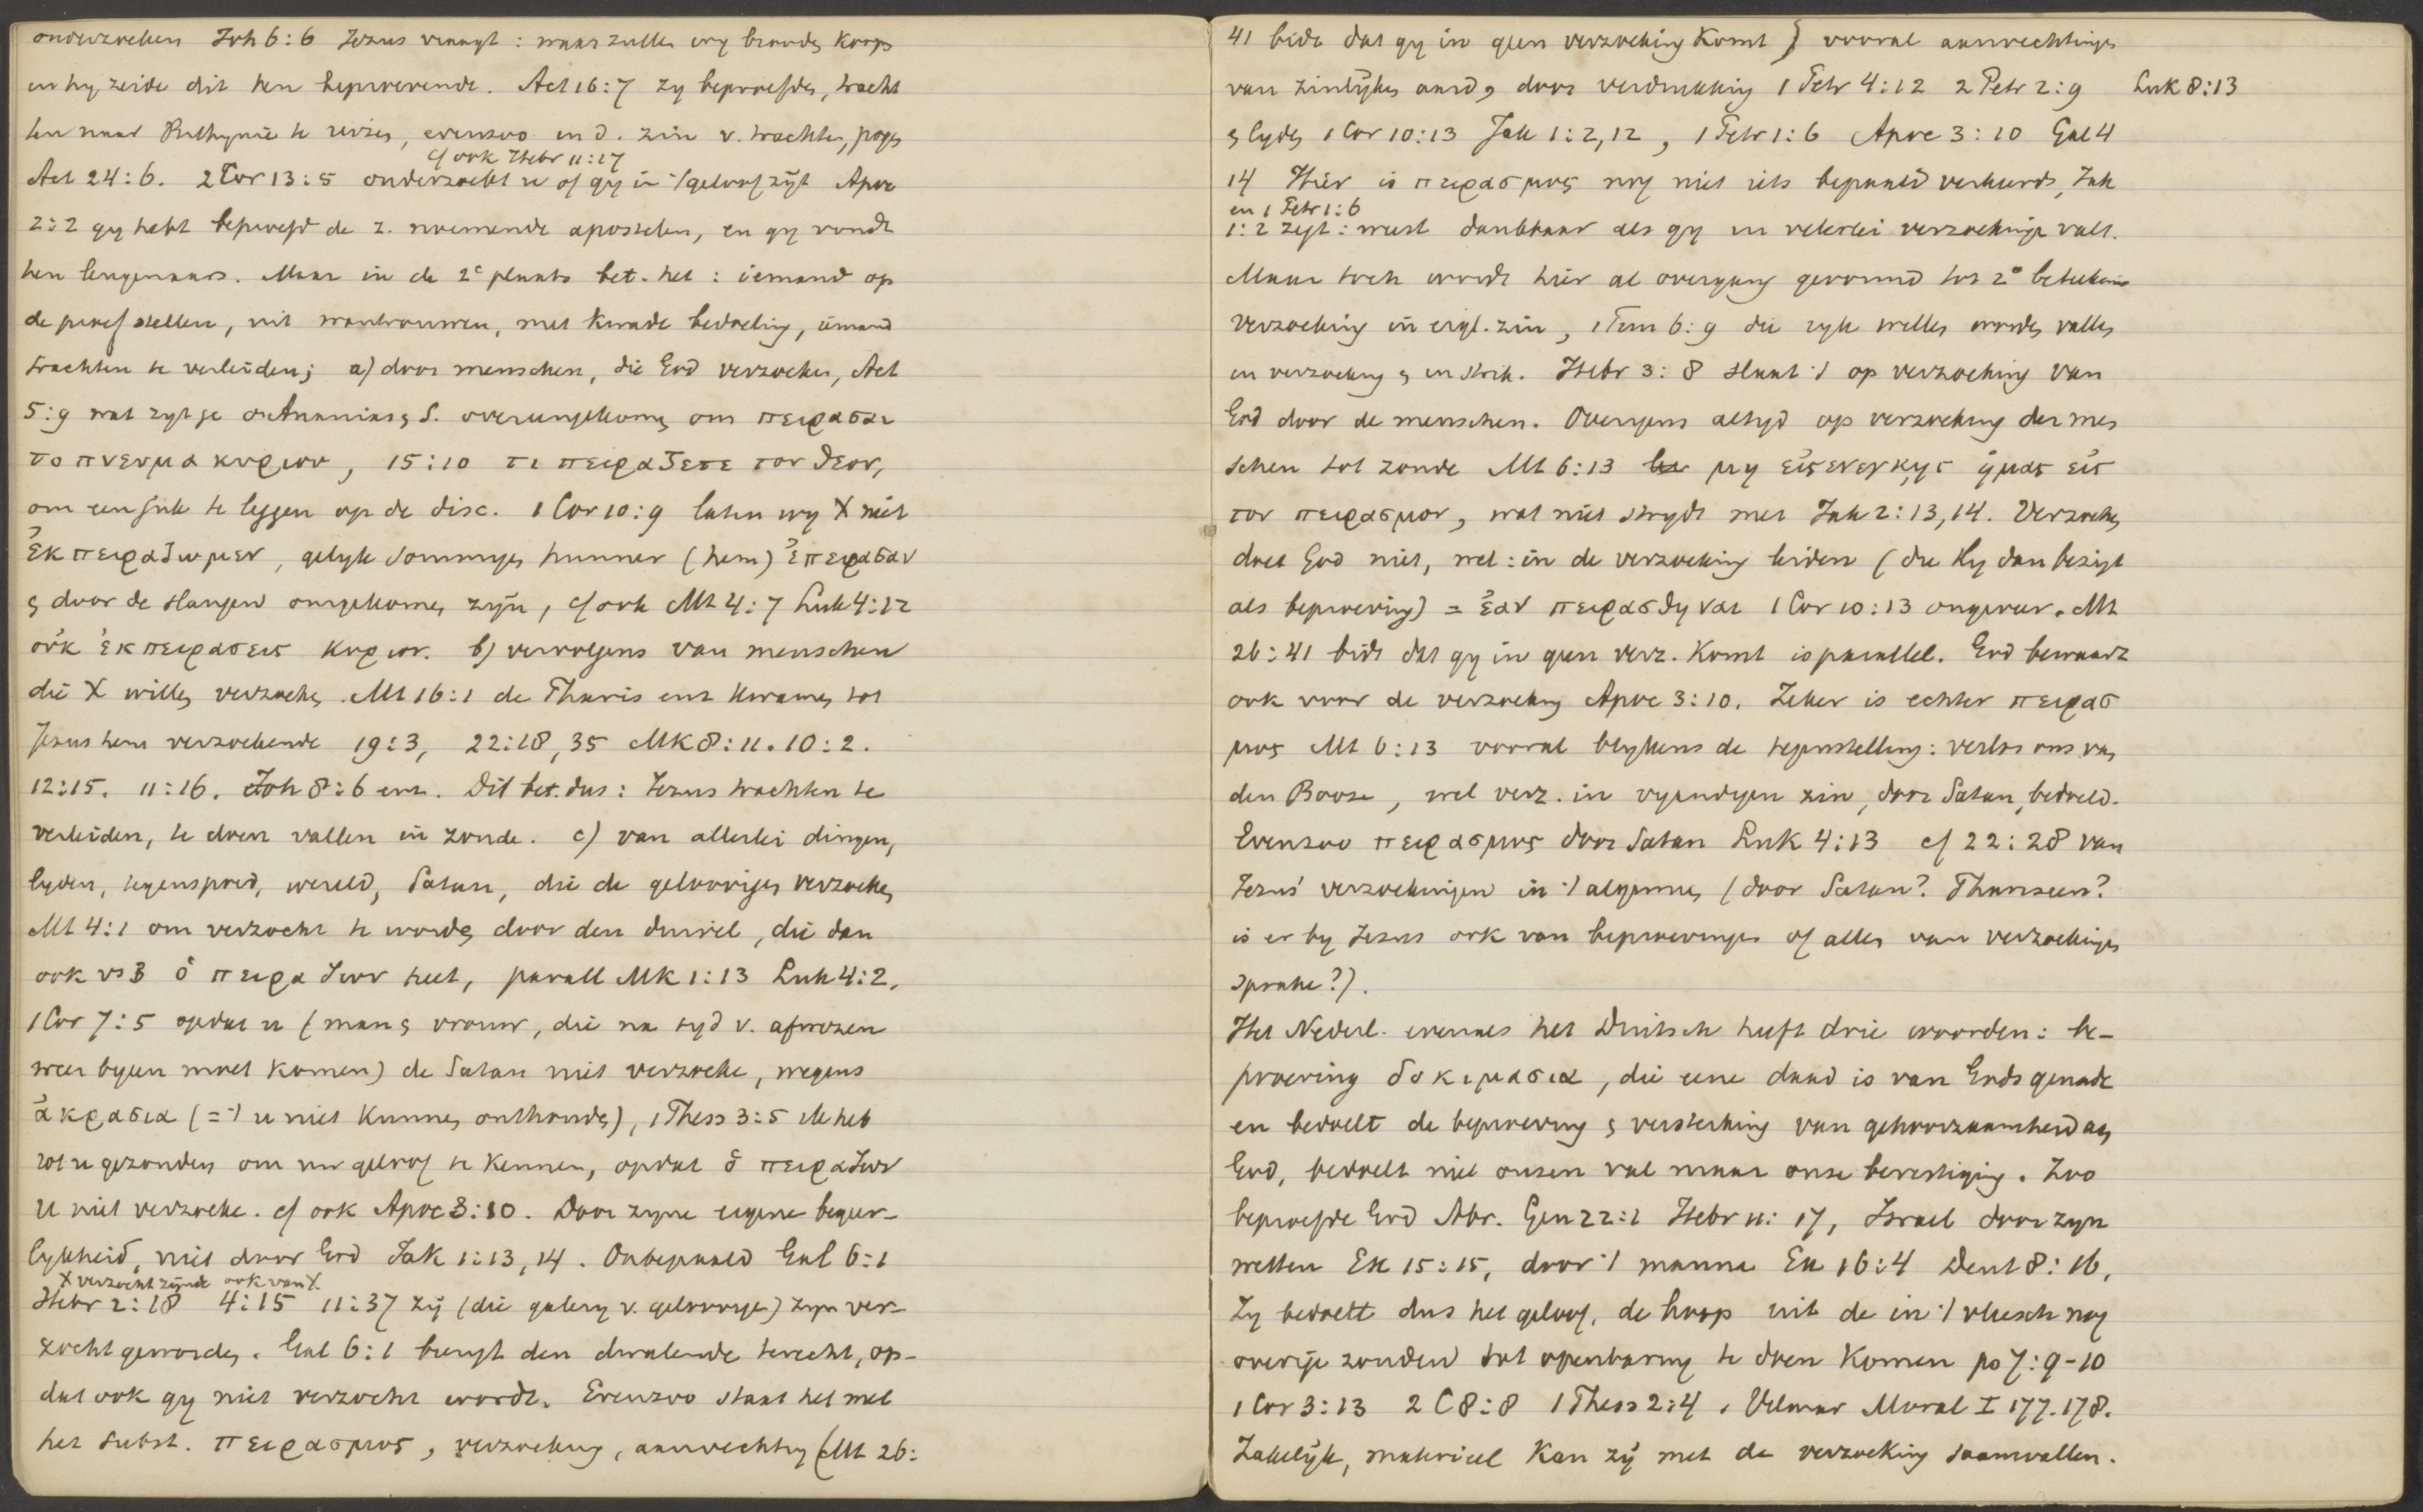 onderzoeken Joh 6:6 Jezus vraagt: waar zullen wy brooden koopen
en hy zeide dit hen beproevende. Act 16:7 zy beproefden, tracht
ten naar Bithynië te reizen, evenzoo in d. zin v. trachten, pogen
cf ook Hebr 11:17
Act 24:6. 2 Cor 13:5 onderzoekt u of gy in 't geloof zyt Apoc
2:2 gy hebt beproefd de z. noemende apostelen, en gy vondt
hen leugenaars. Maar in de 2e plaats bet. het: iemand op
de proef stellen, uit wantrouwen, met kwade bedoeling, iemand
trachten te verleiden; a) door menschen, die God verzoeken, Act
5:9 wat zyt ge o Ananias & S. overeengekomen om πειρασαι
το πνευμα κυριου, 15:10 τι πειραζετε τον θεον,
om een juk te leggen op de disc. 1 Cor 10:9 laten wy X niet
ἐκπειραζωμεν, gelyk sommigen hunner (hem) ἐπειρασαν
& door de slangen omgekomen zyn, cf ook Mt 4:7 Luk 4:12
οὐκ ἐκπειρασεις κυριον. b) vervolgens van menschen
die X willen verzoeken. Mt 16:1 de Pharis enz kwamen tot
Jezus hem verzoekende 19:3, 22:18,35 Mk 8:11. 10:2.
12:15. 11:16. Joh 8:6 enz. Dit bet. dus: Jezus trachten te
verleiden, te doen vallen in zonde. c) van allerlei dingen,
lyden, tegenspoed, wereld, Satan, die de geloovigen verzoeken
Mt 4:1 om verzocht te worden door den duivel, die dan
ook vs 3 ὁ πειραζων heet, parall Mk 1:13 Luk 4:2.
1 Cor 7:5 opdat u (man & vrouw, die na tyd v. afwezen
weer byeen moet komen) de Satan niet verzoeke, wegens
ἀκρασια (= 't u niet kunnen onthouden), 1 Thess 3:5 ik heb
tot u gezonden om uw geloof te kennen, opdat ὁ πειραζων
u niet verzoeke. cf ook Apoc 3:10. Door zyne eigene begeer-
lykheid, niet door God Jak 1:13,14. Onbepaald Gal 6:1
X verzocht zynde ook van X.
Hebr 2:18 4:15 11:37 zy (die galery v. geloovigen) zyn ver-
zocht geworden. Gal 6:1 brengt den dwalende terecht, op-
dat ook gy niet verzocht wordt. Evenzoo staat het met
het subst. πειρασμος, verzoeking, aanvechting (Mt 26:
41 bidt dat gy in geen verzoeking komt) vooral aanvechtingen
van zinlyken aard & door verdrukking 1 Petr 4:12 2 Petr 2:9 Luk 8:13
& lyden 1 Cor 10:13 Jak 1:2,12, 1 Petr 1:6 Apoc 3:10 Gal 4
14 Hier is πειρασμος nog niet iets bepaald verkeerds, Jak
en 1 Petr 1:6
1:2 zegt: weest dankbaar als gy in velerlei verzoekingen valt.
Maar toch wordt hier al overgang gevormd tot 2e beteekenis
verzoeking in eigl. zin, 1 Tim 6:9 die ryk willen worden vallen
in verzoeking & in strik. Hebr 3:8 slaat 't op verzoeking van
God door de menschen. Overigens altyd op verzoeking der men
schen tot zonde Mt 6:13 μη εἰσενεγκης ἡμας εἰς
τον πειρασμον, wat niet strydt met Jak 2:13,14. Verzoeken
doet God niet, wel: in de verzoeking leiden (die Hy dan bezigt
als beproeving) = ἐαν πειρασθηναι 1 Cor 10:13 ongeveer. Mt
26:41 bidt dat gy in geen verz. komt is parallel. God bewaart
ook voor de verzoeking Apoc 3:10. Zeker is echter πειρασ
μος Mt 6:13 vooral blykens de tegenstelling: verlos ons van
den Booze, wel verz. in vyandigen zin, door Satan, bedoeld.
Evenzoo πειρασμος door Satan Luk 4:13 cf 22:28 van
Jezus' verzoekingen in 't algemeen (door Satan? Pharizeen?
is er by Jezus ook van beproevingen of alleen van verzoekingen
sprake?).
Het Nederl. evenals het Duitsch heeft drie woorden: be-
proeving δοκιμασια, die eene daad is van Gods genade
en bedoelt de beproeving & versterking van gehoorzaamheid aan
God, bedoelt niet onzen val maar onze bevestiging. Zoo
beproefde God Abr. Gen 22:1 Hebr 11:17, Israel door zyn
wetten Ex 15:15, door 't manna Ex 16:4 Deut 8:16,
Zy bedoelt dus het geloof, de hoop uit de in 't vleesch nog
overige zonden tot openbaring te doen komen ps 7:9-10
1 Cor 3:13 2 C 8:8 1 Thess 2:4. Vilmar Moral I 177.178.
Zakelyk, materieel kan zy met de verzoeking saamvallen.